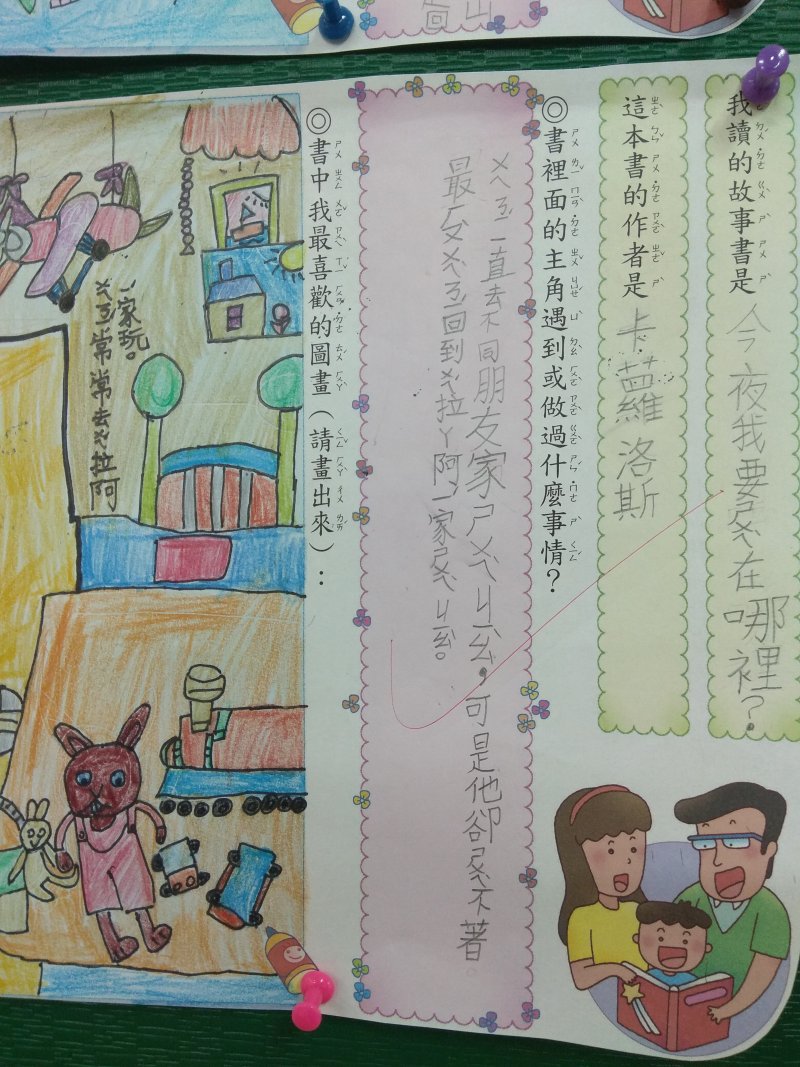 我讀的故事書是 今夜我要ㄕㄨㄟˋ在哪裡?
這本書的作者是 卡蘿洛斯
◎書裡面的主角遇到或做過什麼事情?
一直去不同朋友家ㄕㄨㄟˋㄐㄧㄠ,可是他卻ㄕㄨㄟˋ不著。
最ㄏㄡˋ 回到 拉ㄚ阿ㄧˊ家ㄕㄨㄟˋㄐㄧㄠ。
◎書中我最喜歡的圖畫(請畫出來):
常常去 拉阿
ㄧˊ家玩。